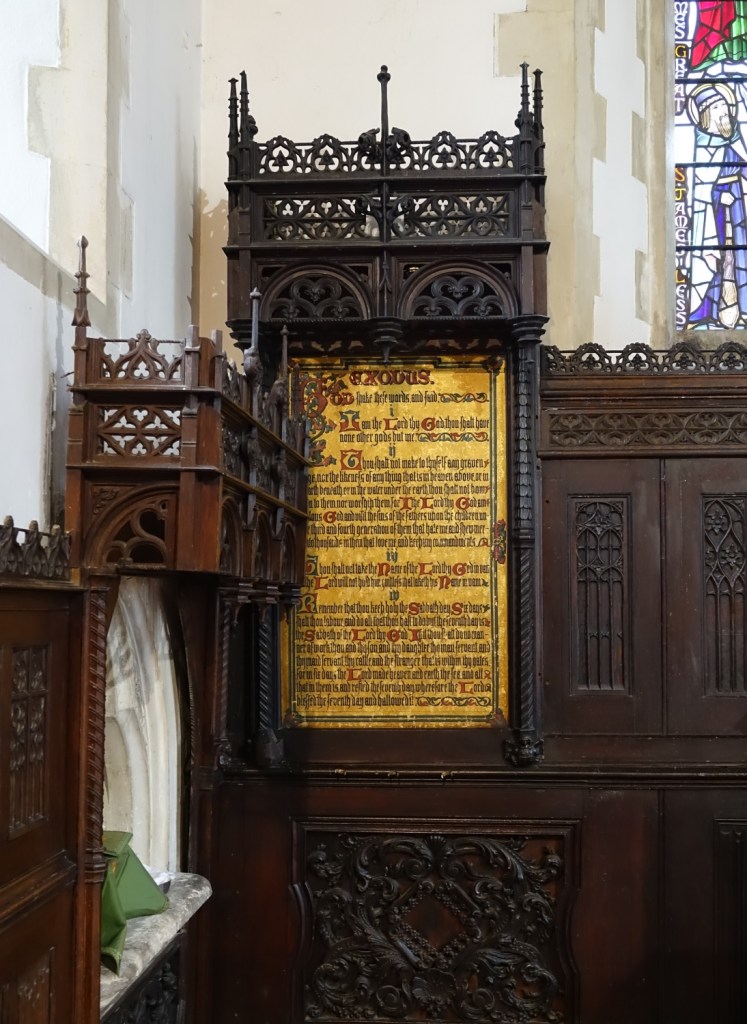 EXODUS.
GOD spake these words and said
i
I am the Lord thy God thou shalt have
none other gods but me
ij
Thou shalt not make to thyself any graven
nor the likeness of any thing that is in heaven above or in
beneath or in the water under the earth thou shalt not bow
to them nor worship them for I The Lord thy God am
God and visit the sins of the fathers upon the children un
third and fourth generation of them that hate me and shew mer
thousands in them that love me and keep my commandments
iij
Thou shalt not take the Name of the Lord thy God in vain
Lord will not hold him guiltless that taketh his Name in vain
iv
Remember that thou keep holy the Sabbath day Six days
shalt thou labour and do all that thou hast to do but the seventh day is
the Sabbath of the Lord thy God In it thou shalt do no man
ner of work thou and thy son and thy daughter thy man servant and
thy maid servant thy cattle and the stranger that is within thy gates
for in six days the Lord made heaven and earth the sea and all
that in them is and rested the seventh day wherefore the Lord
blessed the seventh day and hallowed it
MES GREAT
S JAMES Y LESS